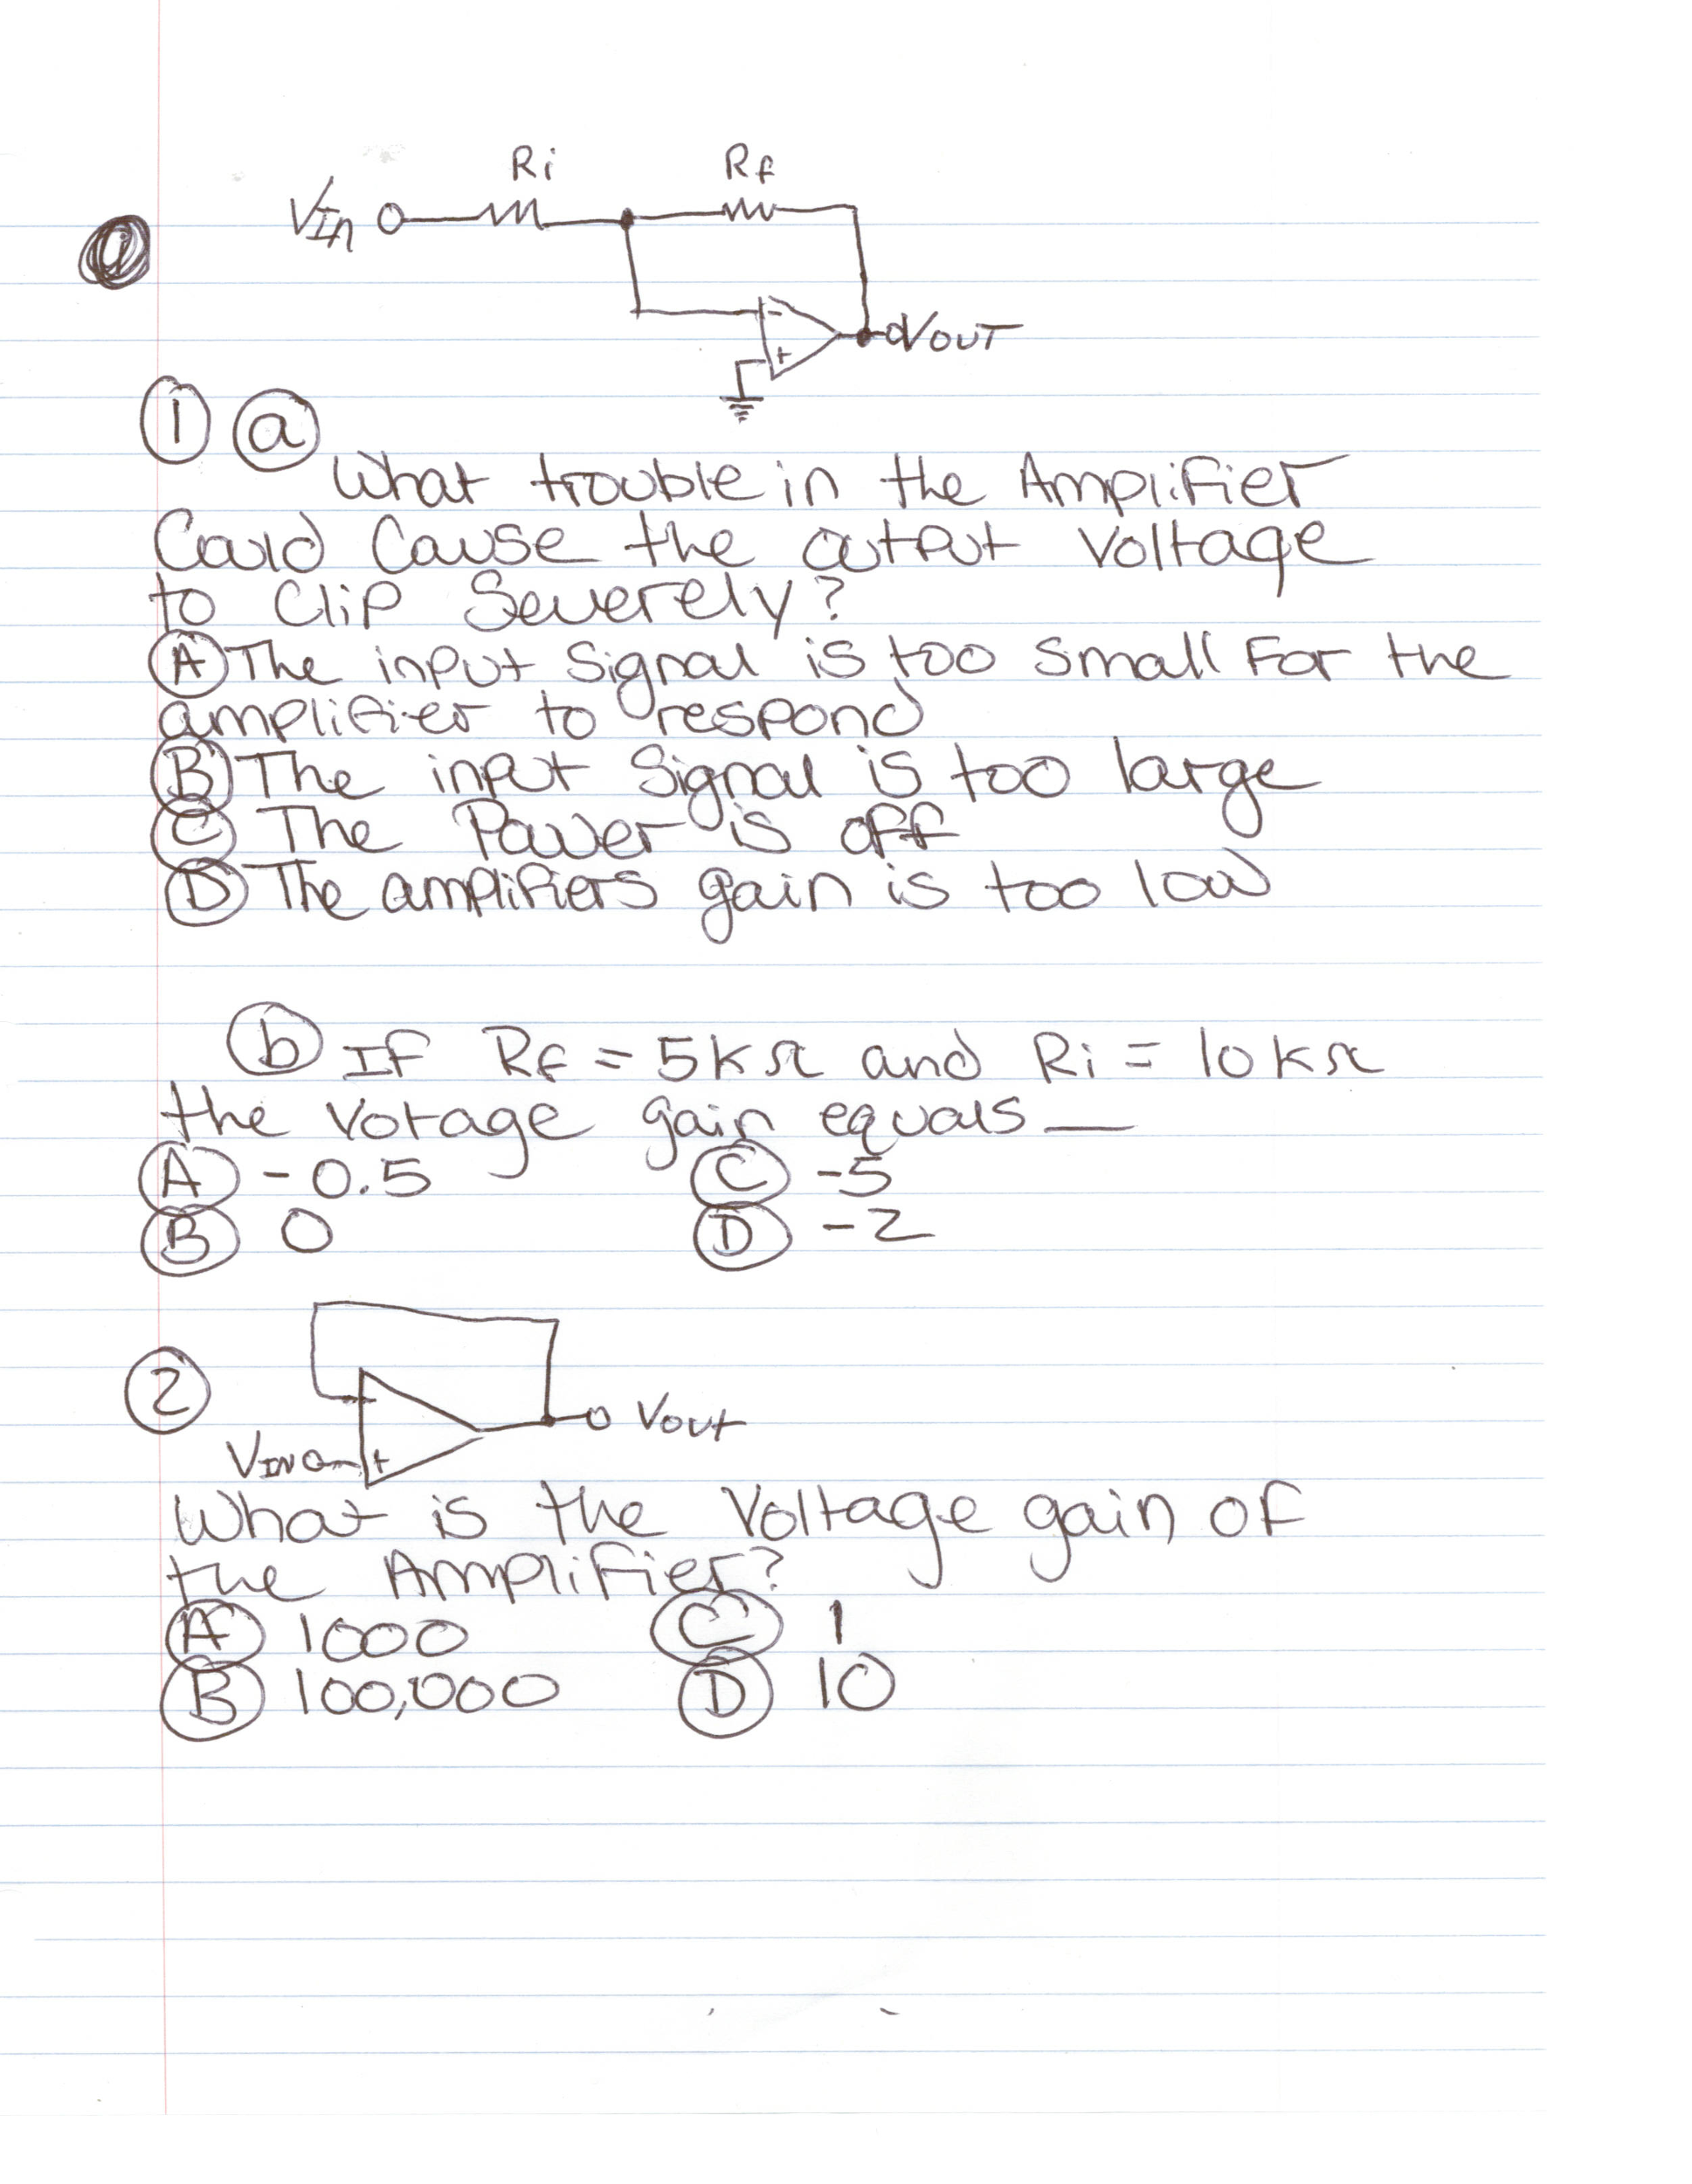 Ri Rf
VIn
- +
VOUT
1 a
What trouble in the Amplifier
Could Cause the output Voltage
to Clip Severely?
A The input Signal is too Small For the
amplifier to respond
B The input Signal is too large
C The Power is off
D The amplifiers gain is too low
b IF Rf = 5KΩ and Ri = 10KΩ
the Votage gain equals __
A -0.5 C -5
B 0 D -2
2
-
Vout
VIN +
What is the Voltage gain of
the Amplifier?
A 1000 C 1
B 100,000 D 10